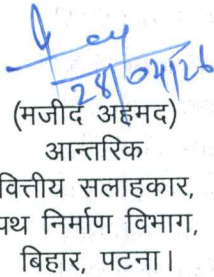 28/04/26
(मजीद अहमद)
आन्तरिक
वित्तीय सलाहकार,
पथ निर्माण विभाग,
बिहार, पटना।